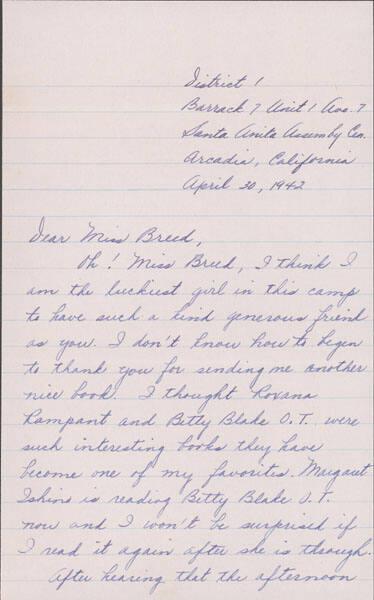 District 1
Barrack 7 Unit 1 Ave. 7
Santa Anita Assembly Cen.
Arcadia, California
April 20, 1942
Dear Miss Breed,
Oh! Miss Breed, I think I
am the luckiest girl in this camp
to have such a kind generous friend
as you. I don't know how to begin
to thank you for sending me another
nice book. I thought Roxana
Rampant and Betty Blake O.T. were
such interesting books they have
become one of my favorites. Margaret
Ishino is reading Betty Blake O.T.
now and I won't be surprised if
I read it again after she is through.
After hearing that the afternoon